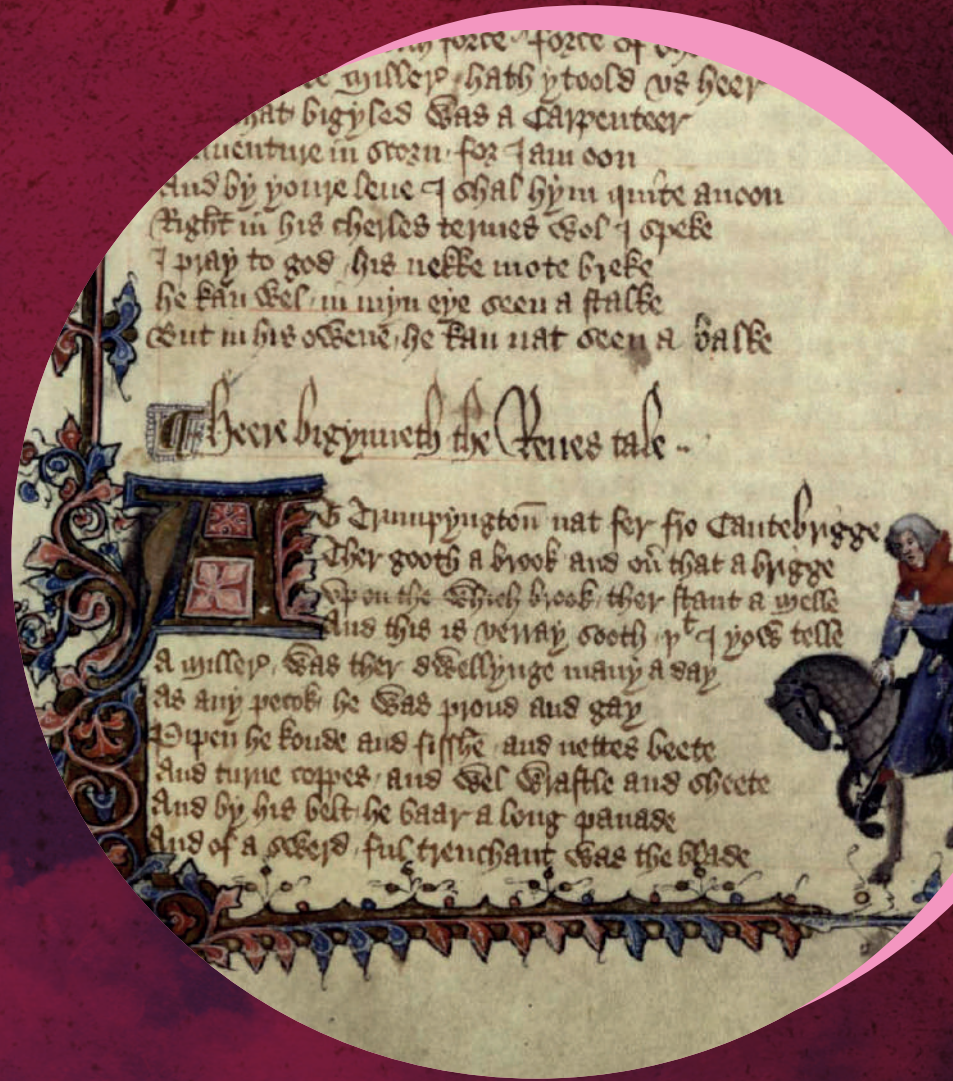 force force of
miller hath ytoold vs heer
hat bigyled was a Carpenteer
auenture in scorn for I am oon
And by youre leue I shal hym quite anoon
Right in his cherles termes wol I speke
I pray to god his nekke mote breke
he kan wel in myn eye seen a stalke
But in his owene he kan nat seen a balke
Heere bigynneth the Reues tale
At Trumpyngton̄ nat fer fro Cantebrigge
Ther gooth a brook and ou̅ that a brigge
Vp on the which brook ther stant a melle
And this is verray sooth þᵗ I yow telle
A miller was ther dwellynge many a day
As any pecok he was proud and gay
Pipen he koude and fisshe and nettes beete
And turne coppes and wel wrastle and sheete
And by his belt he baar a long panade
And of a swerd ful trenchant was the blade